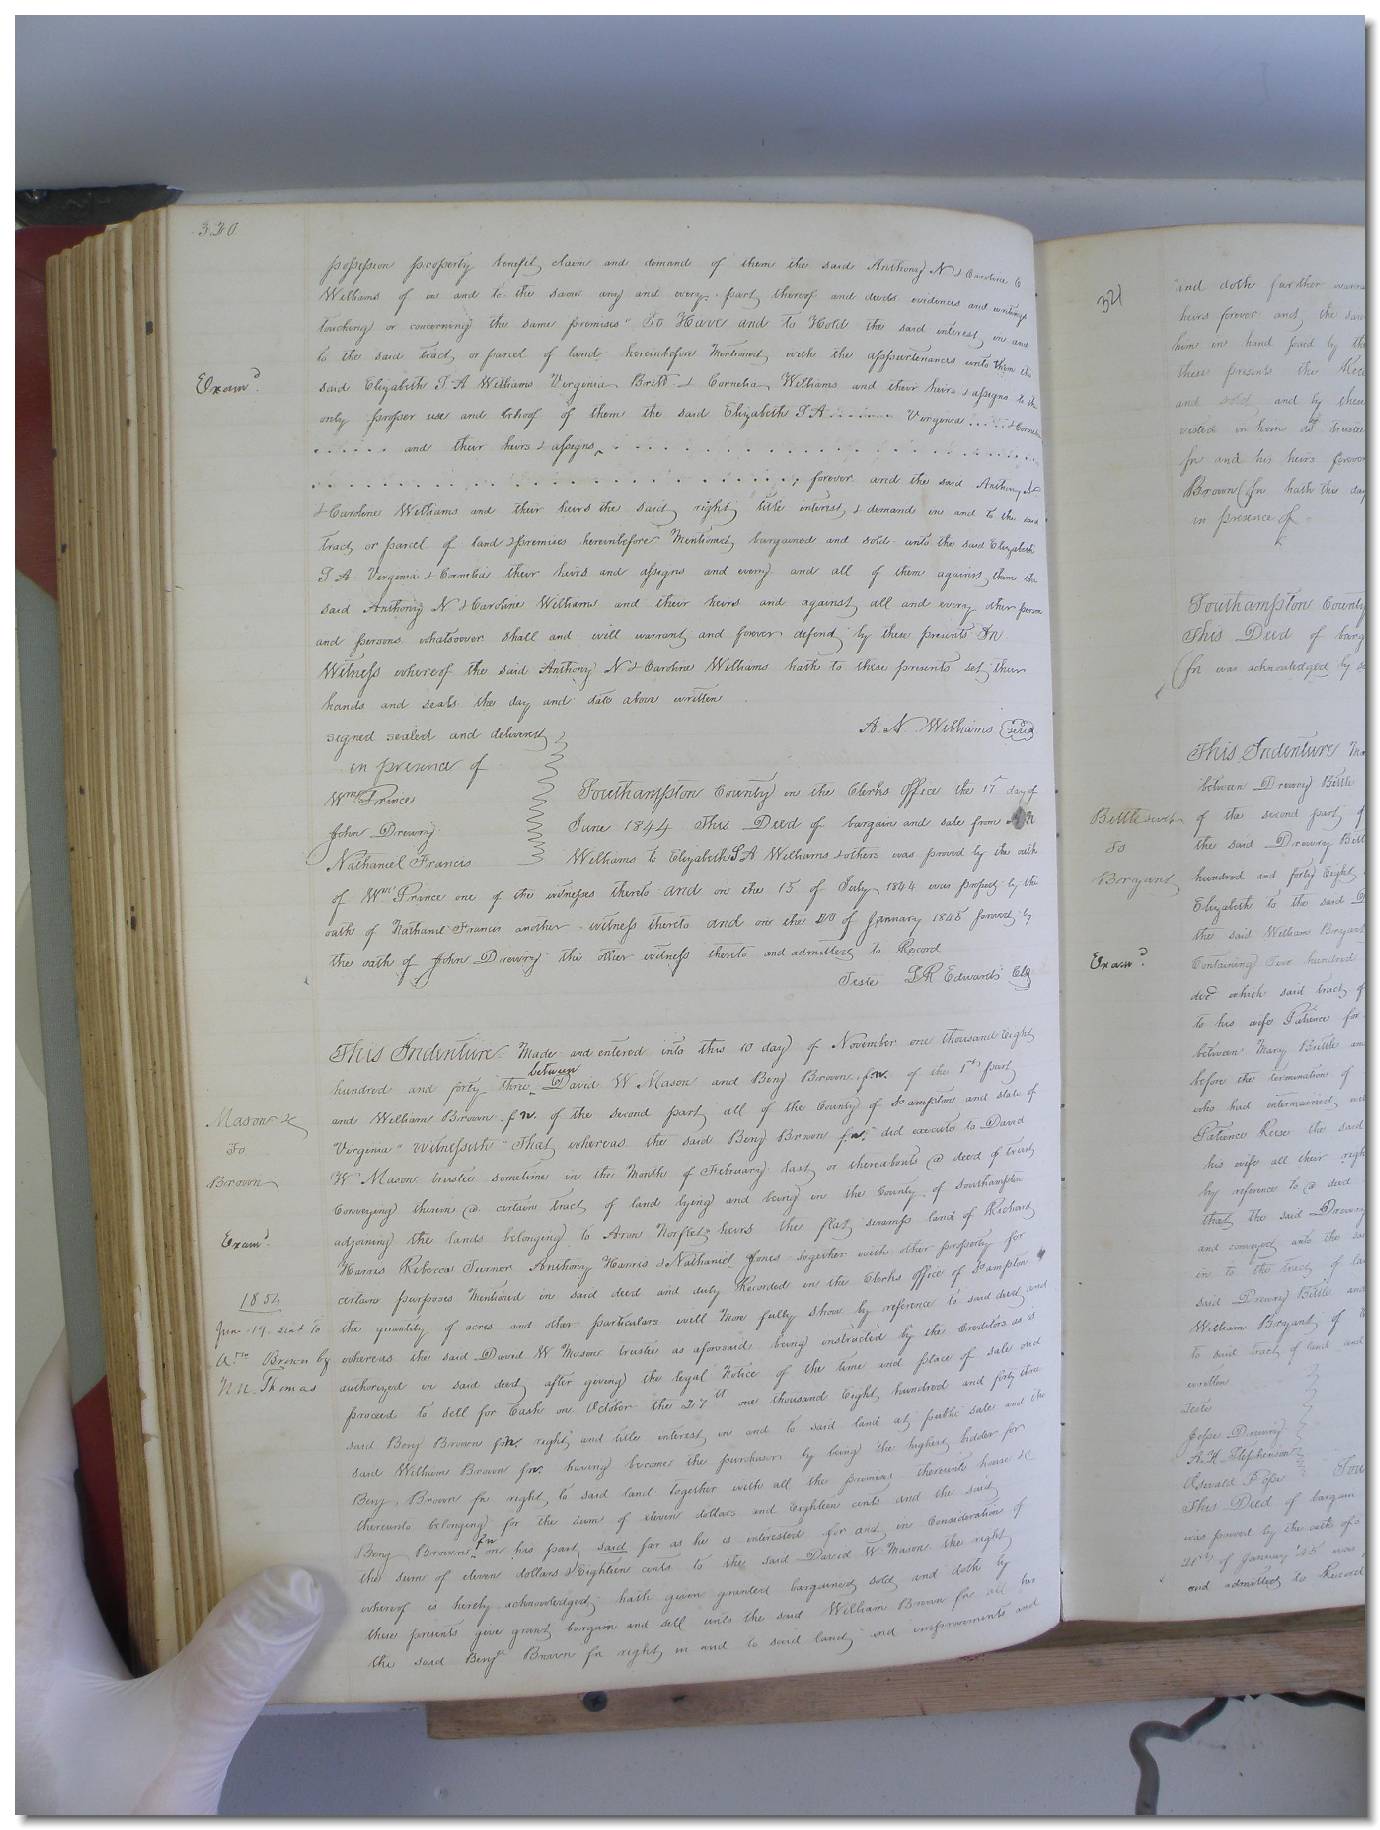 320
possession property benefit claim and demand of them the said Anthony N & Caroline C
Williams of in and to the same any and every part thereof and deeds evidences and writings
touching or concerning the same premises" To Have and to Hold the said interest in and
to the said tract or parcel of land hereinbefore Mentioned with the appurtenances unto them the
Exam.d
said Elizabeth S A Williams Virginia Britt & Cornelia Williams and their heirs & assigns to the
only proper use and behoof of them the said Elizabeth S A ...... Virginia ..... & Cornelia
...... and their heirs & assigns
; forever and the said Anthony N
& Caroline Williams and their heirs the said right title interest & demand in and to the said
tract or parcel of land & premises hereinbefore Mentioned bargained and sold unto the said Elizabeth
S A Virginia & Cornelia their heirs and assigns and every and all of them against them the
said Anthony N & Caroline Williams and their heirs and against all and every other person
and persons whatsoever shall and will warrant and forever defend by these presents In
Witness whereof the said Anthony N & Caroline Williams hath to these presents set their
hands and seals the day and date above written
signed sealed and delivered
A. N. Williams seal
in presence of
Wm Prince
John Drewry
Nathaniel Francis
Southampton County in the Clerks Office the 17 day of
June 1844 This Deed of bargain and sale from A N
Williams to Elizabeth S A Williams & others was proved by the oath
of Wm Prince one of the witnesses thereto and on the 15 of July 1844 was proved by the
oath of Nathaniel Francis another witness thereto and on the 20 of January 1845 proved by
the oath of John Drewry the other witness thereto and admitted to Record
Teste L R Edwards Clk
This Indenture Made and entered into this 10 day of November one thousand Eight
hundred and forty three between David W Mason and Benj Brown f.n. of the 1st part
Mason &
To
Brown
and William Brown f.n. of the second part all of the County of So ampton and state of
Virginia" witnesseth That whereas the said Benj Brown f.n. did execute to David
W Mason trustee sometime in the Month of February last or thereabouts a deed of trust
Conveying therein a certain tract of land lying and being in the County of Southampton
Exam.d
adjoining the lands belonging to Arons Norfleets heirs the flat swamp land of Richard
Harris Rebecca Turner Anthony Harris & Nathaniel Jones together with other property for
certain purposes Mentioned in said deed and duly Recorded in the Clerks office of So ampton
1852
Jan. 19. sent to
Wm Brown by
N. N. Thomas
the quantity of acres and other particulars will More fully Show by reference to said deed and
whereas the said David W Mason trustee as aforesaid being instructed by the Creditors as is
authorized in said deed after giving the legal Notice of the time and place of sale did
proceed to sell for Cash on October the 27th one thousand Eight hundred and forty three
said Benj Brown f.n. right and title interest in and to said land at public sale and the
said William Brown f.n. having become the purchaser by being the highest bidder for
Benj. Brown fn right to said land together with all the premises thereunto house &c
thereunto belonging for the sum of eleven dollars and Eighteen cents and the said
Benj Brown fn on his part said far as he is interested for and in Consideration of
the sum of eleven dollars & Eighteen cents to the said David W Mason the right
whereof is hereby acknowledged hath given granted bargained sold and doth by
these presents give grant bargain and sell unto the said William Brown fn all his
the said Benj Brown fn right in and to said land and improvements and
321
and doth further warra
heirs forever and the said
him in hand paid by th
these presents the Rece
and sold and by these
vested in him as trustee
fn and his heirs forever
Brown fn hath this day
in presence of
Southampton County
This Deed of barg
fn was acknowledged by
This Indenture Ma
between Drewry Bittle
Bittle
To
Bryant
of the second part of
the said Drewry Bitt
hundred and forty Eight
Elizabeth to the said
the said William Bryant
Exam.d
Containing Two hundred
&c which said tract of
to his wife Patience for
between Mary Brittle an
before the termination of
who had intermarried
Patience Reese the said
his wife all their righ
by reference to a deed
that the said Drewry
and conveyed unto the sa
in to the tract of la
said Drewry Bittle and
William Bryant of
to said tract of land and
written
Teste
Jesse Drewry
A. H. Stephenson
Oswald Pope
Sou
This Deed of bargain
was proved by the oath of
20th of January 45 was
and admitted to Record